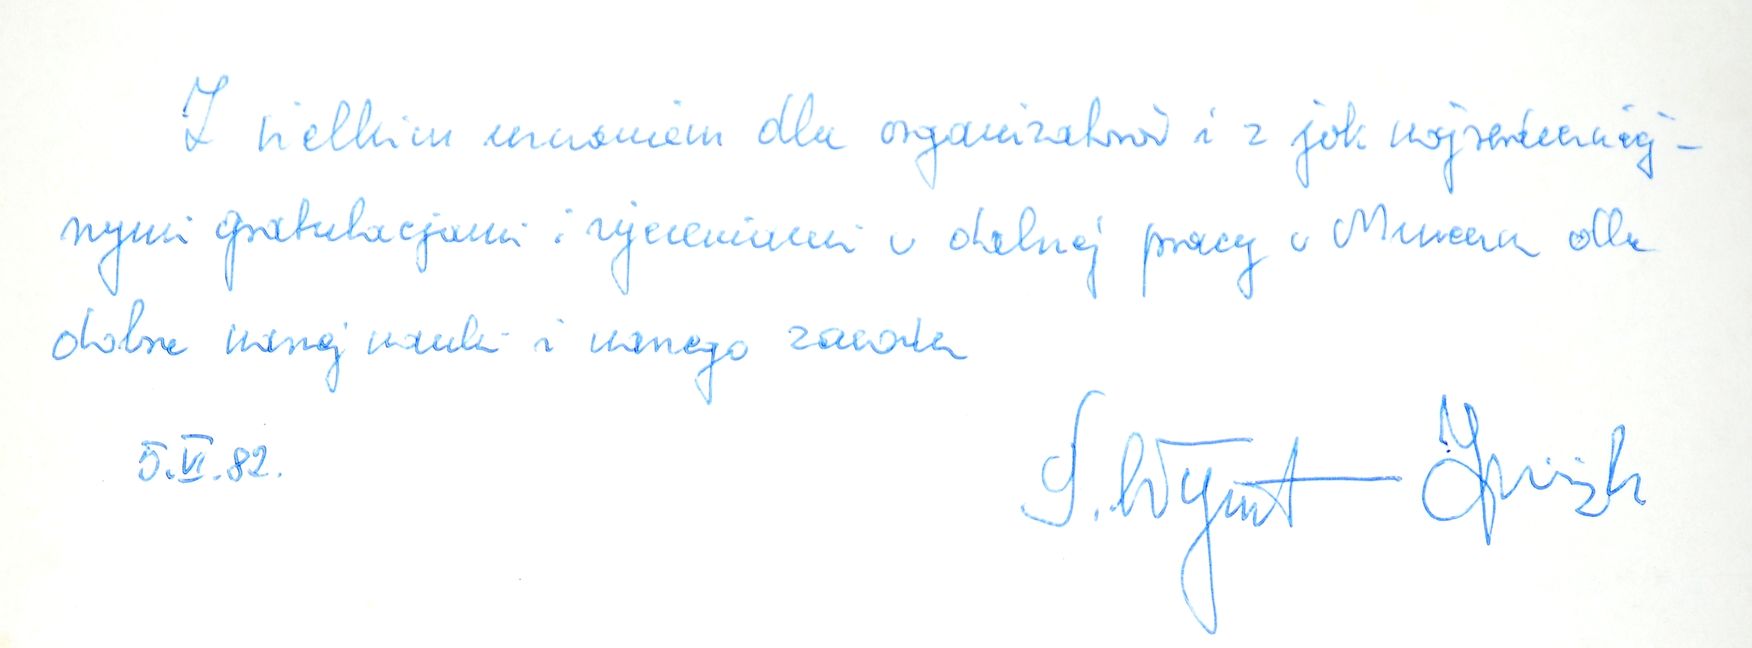 Z wielkim uznaniem dla organizatorów i z jak najserdeczniej-
szymi gratulacjami i życzeniami w dalszej pracy w Muzeum dla
dobra naszej nauki i naszego zawodu
5.VI.82.